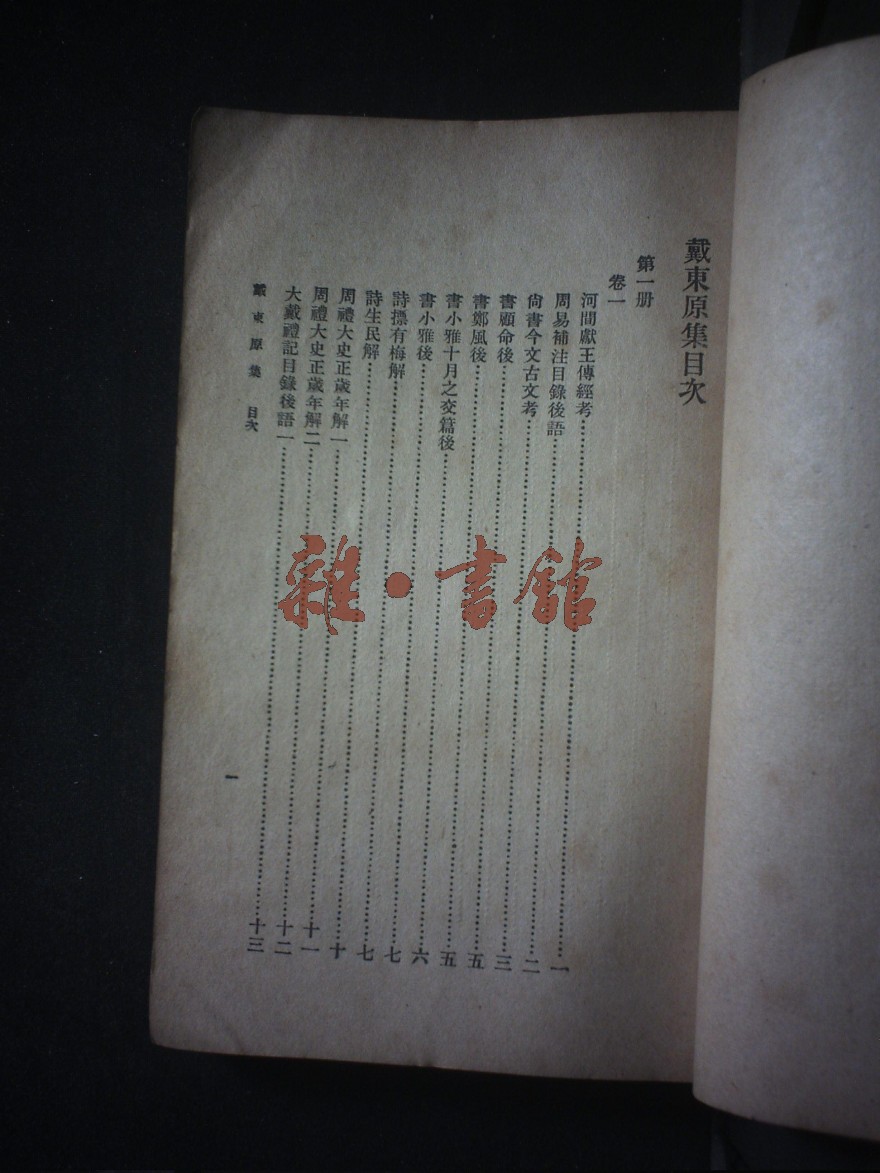 戴東原集目次
第一册
卷一
河間獻王傳經考……一
周易補注目錄後語……二
尙書今文古文考……三
書顧命後……五
書鄭風後……五
書小雅十月之交篇後……六
書小雅後……七
詩摽有梅解……七
詩生民解……十
周禮大史正歲年解一……十一
周禮大史正歲年解二……十二
大戴禮記目錄後語一……十三
戴東原集 目次
一
雜·書館